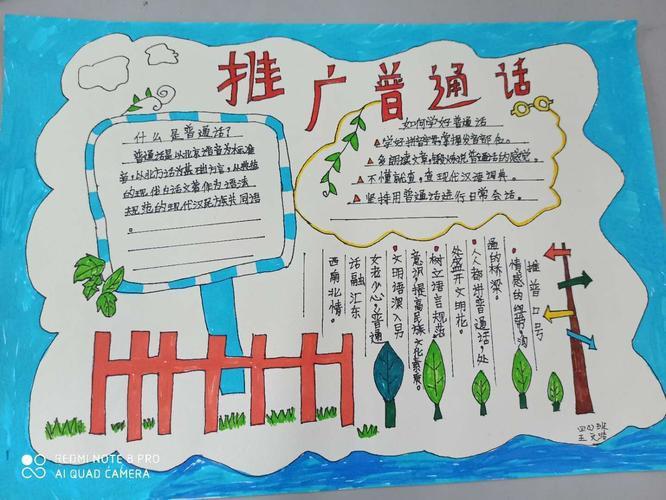 推广普通话
什么是普通话?
普通话是以北京语音为标准
音,以北方话为基础方言,以典范
的现代白话文著作为语法
规范的现代汉民族共同语
。
如何学好普通话
学好拼音,掌握发音部位。
多朗读文章,锻炼说普通话的感觉。
不懂就查,查现代汉语词典。
坚持用普通话进行日常会话。
推普口号
情感的纽带,沟
通的桥梁。
人人都讲普通话,处
处盛开文明花。
树立语言规范
意识,提高民族文化素质。
文明语深入男
女老少心,普通
话融汇东
西南北情。
四(2)班
REDMI NOTE 8 PRO
AI QUAD CAMERA